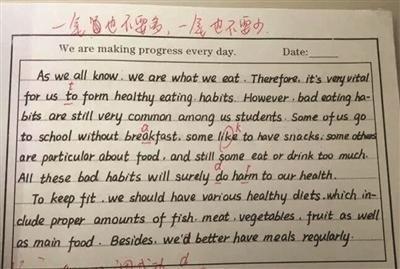 一笔画也不要多，一笔也不要少.
We are making progress every day. Date:
As we all know, we are what we eat. Therefore, it's very vital
for us to form healthy eating habits. However, bad eating ha-
bits are still very common among us students. Some of us go
to school without breakfast, some like to have snacks, some others
are particular about food, and still some eat or drink too much.
All these bad habits will surely do harm to our health.
To keep fit, we should have various healthy diets, which in-
clude proper amounts of fish, meat, vegetables, fruit as well
as main food. Besides, we'd better have meals regularly.